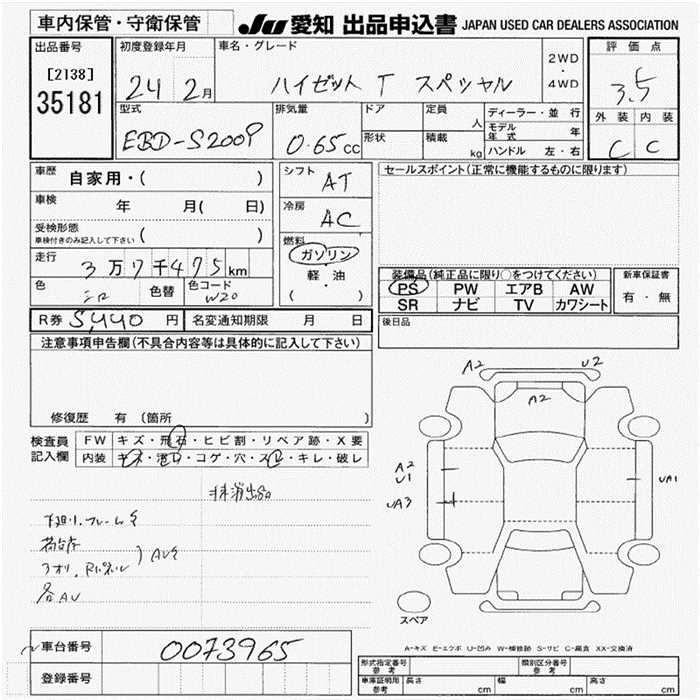 車内保管・守衛保管
JU 愛知 出品申込書 JAPAN USED CAR DEALERS ASSOCIATION
出品番号
[2138]
35181
初度登録年月
24 2月
車名・グレード
ハイゼット T スペシャル
2WD
・
4WD
評価点
3.5
外装 内装
C C
型式
EBD-S200P
排気量
0.65cc
ドア
形状
定員
人
積載
kg
ディーラー・並行
モデル年式 年
ハンドル 左・右
車歴
自家用・( )
車検
年 月( 日)
受検形態
車検付きのみ記入して下さい ( )
走行
3万7千475km
色
色替
色コード
W20
シフト
AT
冷房
AC
燃料
ガソリン
軽・油
( )
セールスポイント(正常に機能するものに限ります)
装備品(純正品に限り○をつけてください)
PS PW エアB AW
SR ナビ TV カワシート
新車保証書
有・無
後日品
R券 5,440 円
名変通知期限 月 日
注意事項申告欄(不具合内容等は具体的に記入して下さい)
修復歴 有 (箇所 )
検査員
記入欄
FW キズ・飛石・ヒビ割・リペア跡・X要
内装 キズ・汚れ・コゲ・穴・スレ・キレ・破レ
下廻り、フレームサ
荷台サ
アオリ、Rパネル
AUサ
各AU
A2
U2
A2
A2
U1
UA3
UA1
スペア
A-キズ E-エクボ U-凹み W-補修跡 S-サビ C-腐食 XX-交換済
車台番号
0073965
登録番号
型式指定番号
参考
類別区分番号
参考
車庫証明用
参考
長さ cm
幅 cm
高さ cm